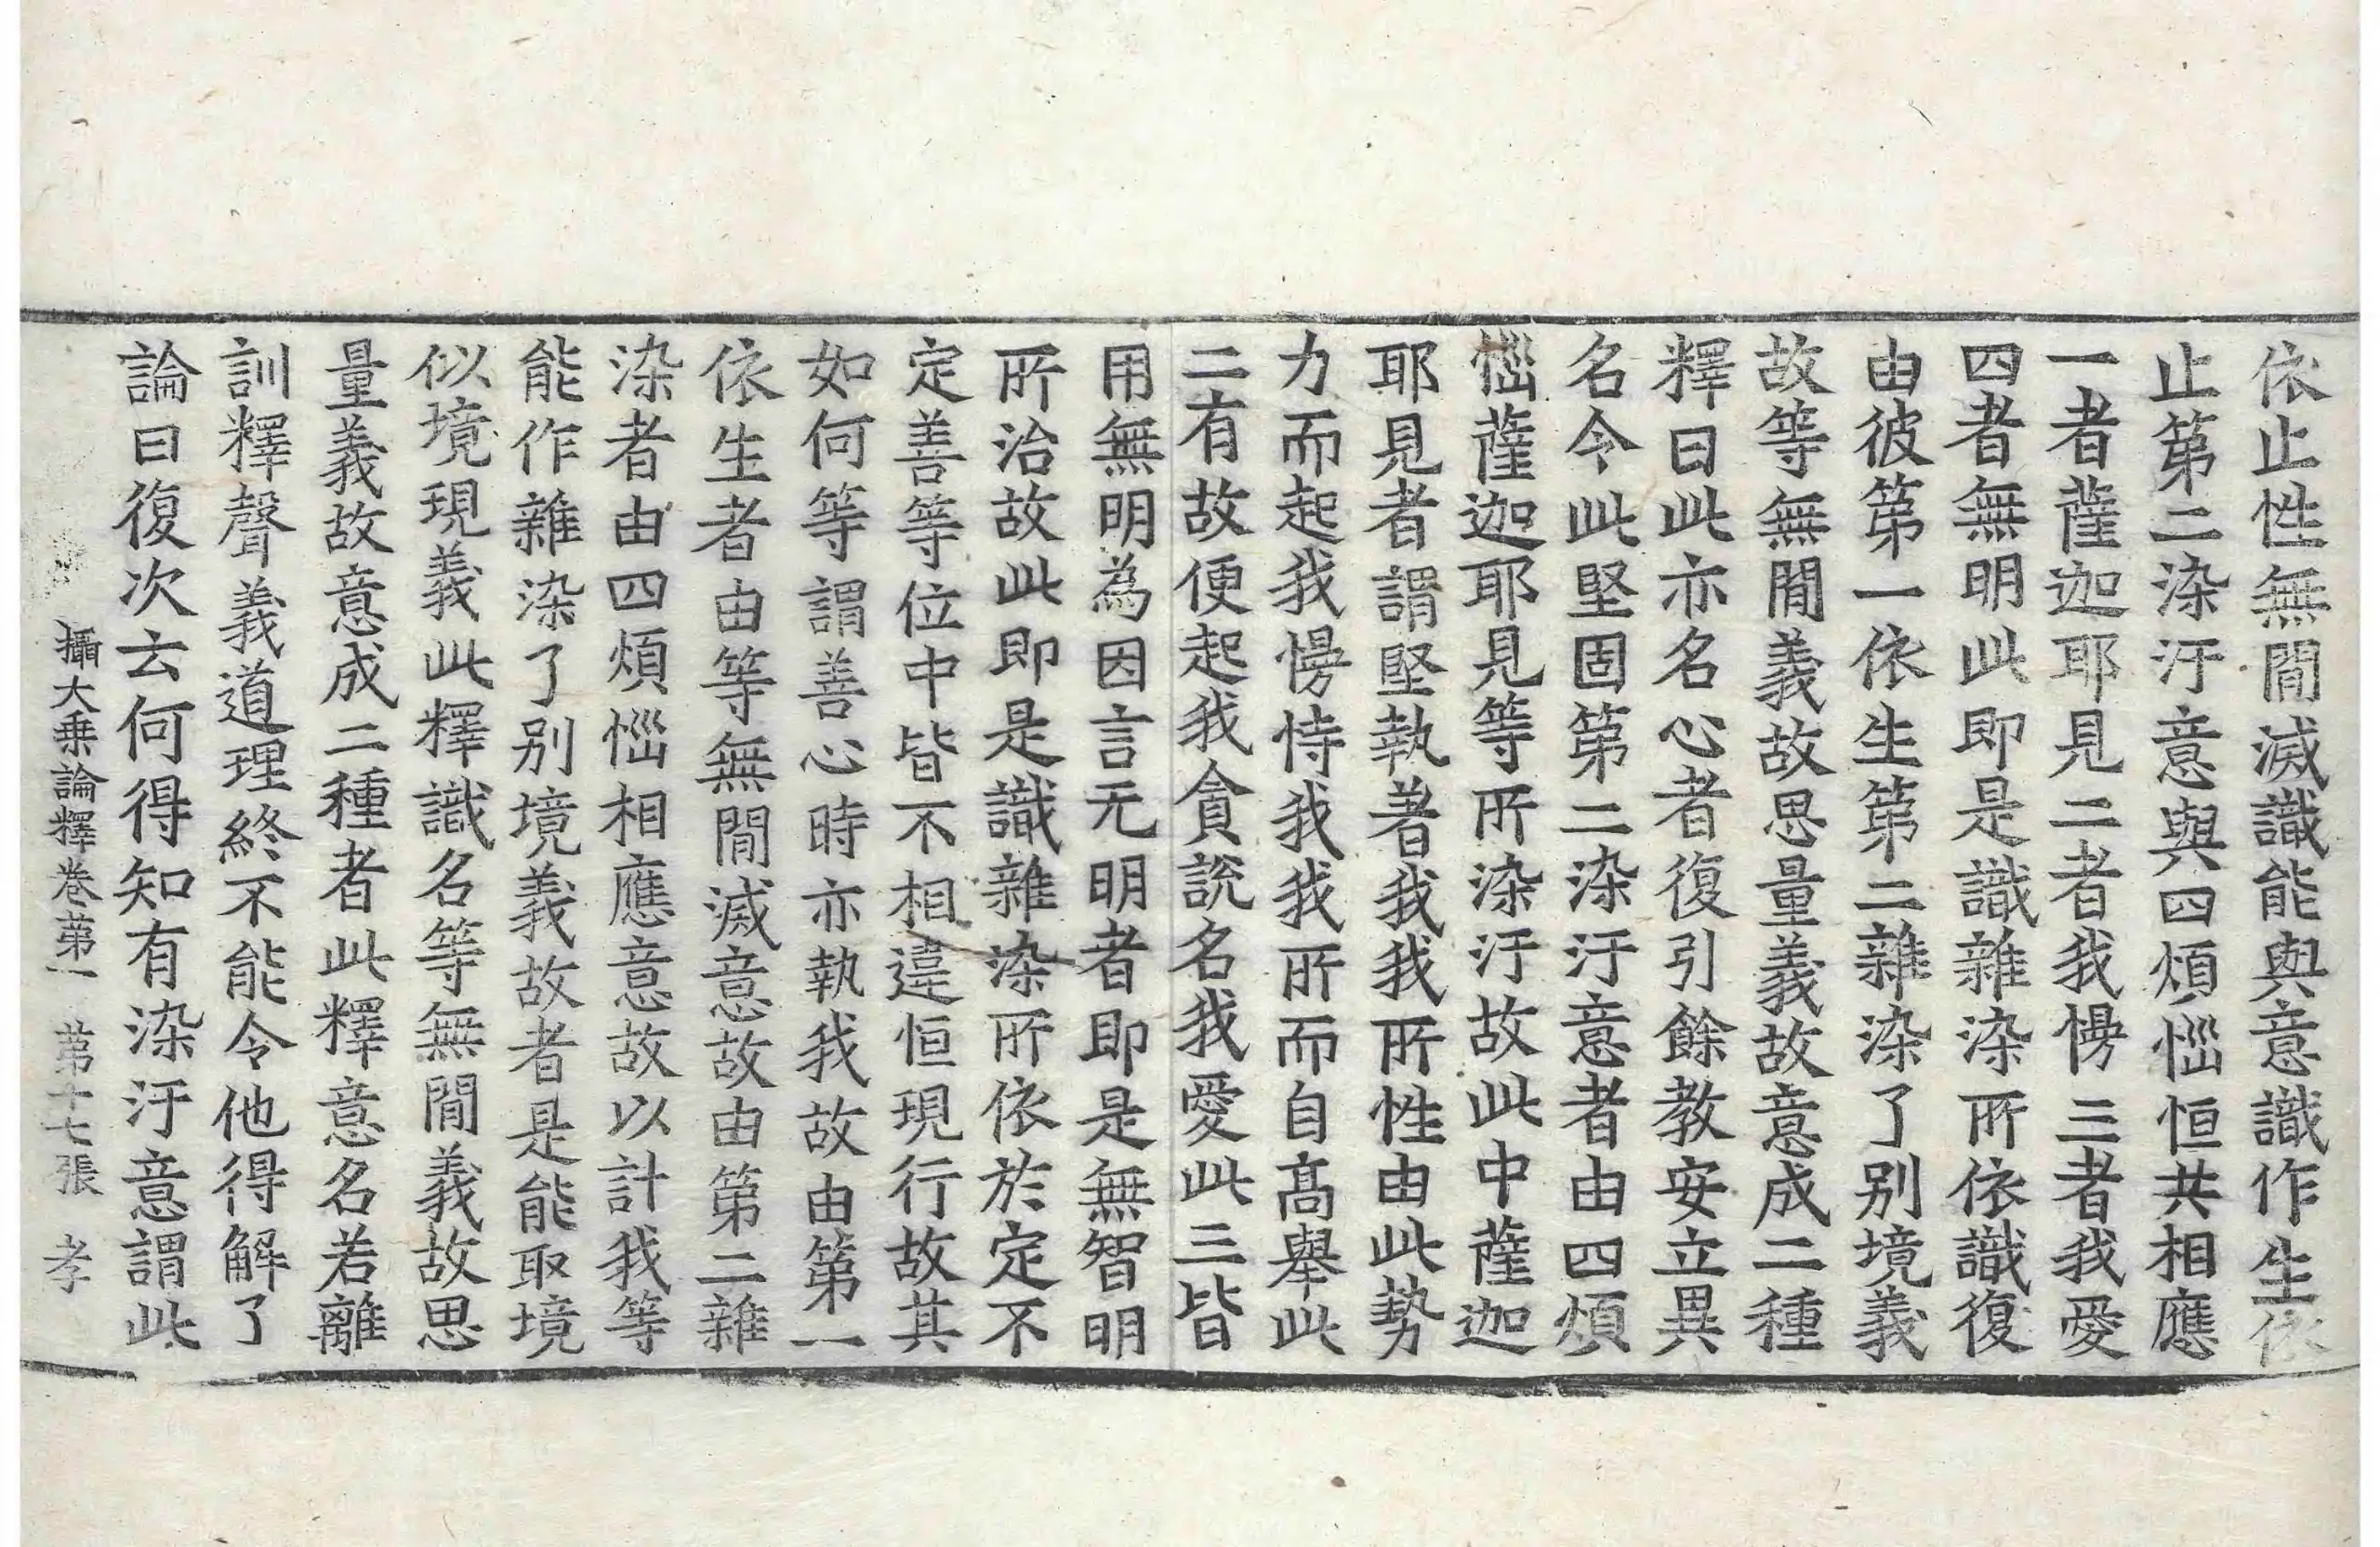 依止性無間滅識能與意識作生依
止第二染汙意與四煩惱恒共相應
一者薩迦耶見二者我慢三者我愛
四者無明此即是識雜染所依識復
由彼第一依生第二雜染了别境義
故等無間義故思量義故意成二種
釋曰此亦名心者復引餘教安立異
名令此堅固第二染汙意者由四煩
惱薩迦耶見等所染汙故此中薩迦
耶見者謂堅執著我我所性由此勢
力而起我慢恃我我所而自髙舉此
二有故便起我貪說名我愛此三皆
用無明為因言无明者即是無智明
所治故此即是識雜染所依於定不
定善等位中皆不相違恒現行故其
如何等謂善心時亦執我故由第一
依生者由等無間滅意故由第二雜
染者由四煩惱相應意故以計我等
能作雜染了别境義故者是能取境
似境現義此釋識名等無間義故思
量義故意成二種者此釋意名若離
訓釋聲義道理終不能令他得解了
論曰復次云何得知有染汙意謂此
攝大乗論釋卷第一 第十七張 孝